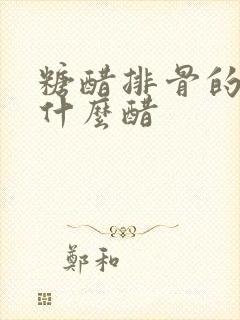 糖醋排骨的
什麼醋
鄭和